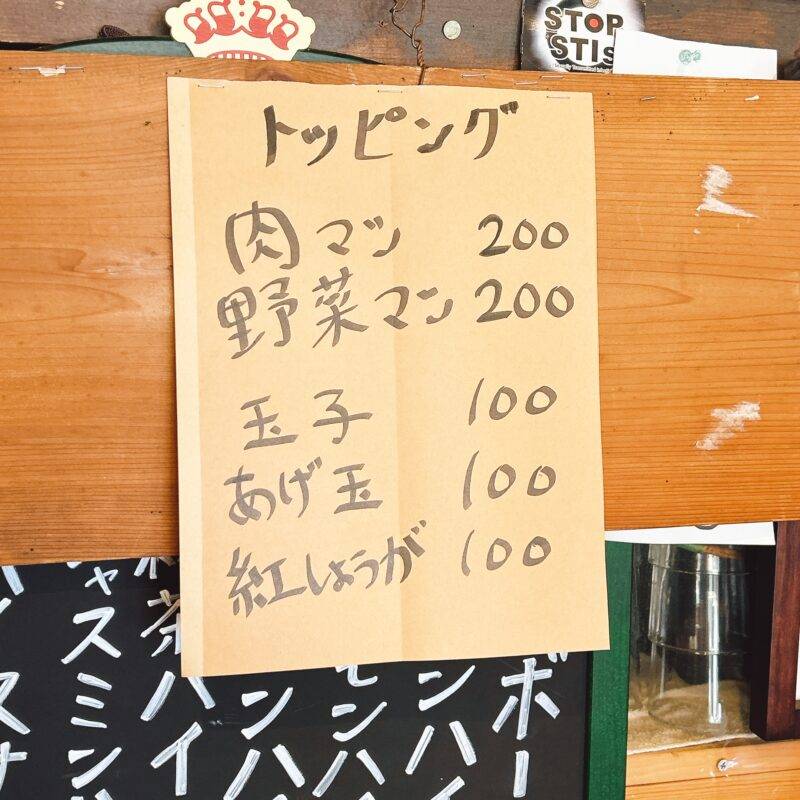 STOP
STIs
トッピング
肉マン 200
野菜マン 200
玉子 100
あげ玉 100
紅しょうが 100
ボー
ンハ
モンハ
ンハ
茶ハイ
ャスミンハ
スサ